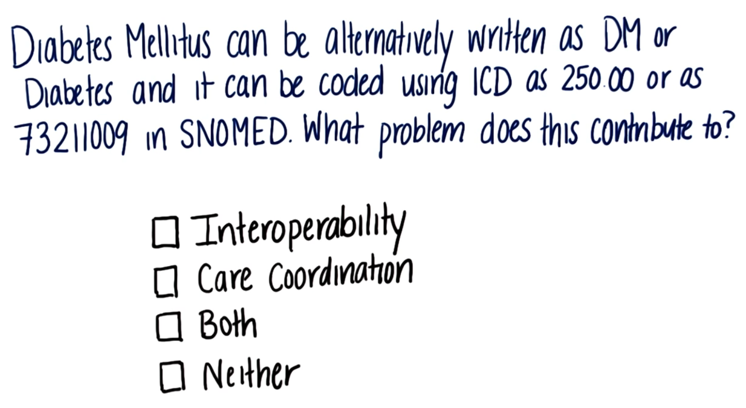 Diabetes Mellitus can be alternatively written as DM or
Diabetes and it can be coded using ICD as 250.00 or as
73211009 in SNOMED. What problem does this contribute to?
Interoperability
Care Coordination
Both
Neither